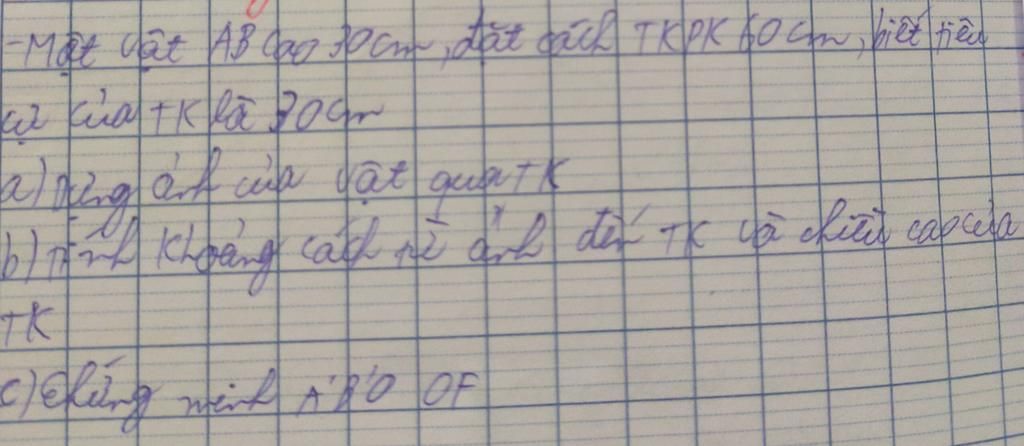 -Một vật AB cao 30cm, đặt cách TKPK 60cm, biết tiêu
cự của TK là 30cm
a) Dựng ảnh của vật qua TK
b) Tính khoảng cách từ ảnh đến TK và chiều cao của
TK
c) Chứng minh A'B'O OF